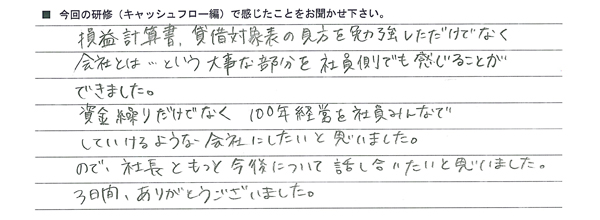 ■ 今回の研修（キャッシュフロー編）で感じたことをお聞かせ下さい。
損益計算書、貸借対象表の見方を勉強しただけでなく
会社とは…という大事な部分を社員側でも感じることが
できました。
資金繰りだけでなく 100年経営を社員みんなで
していけるような会社にしたいと思いました。
ので、社長ともっと今後について話し合いたいと思いました。
3日間、ありがとうございました。